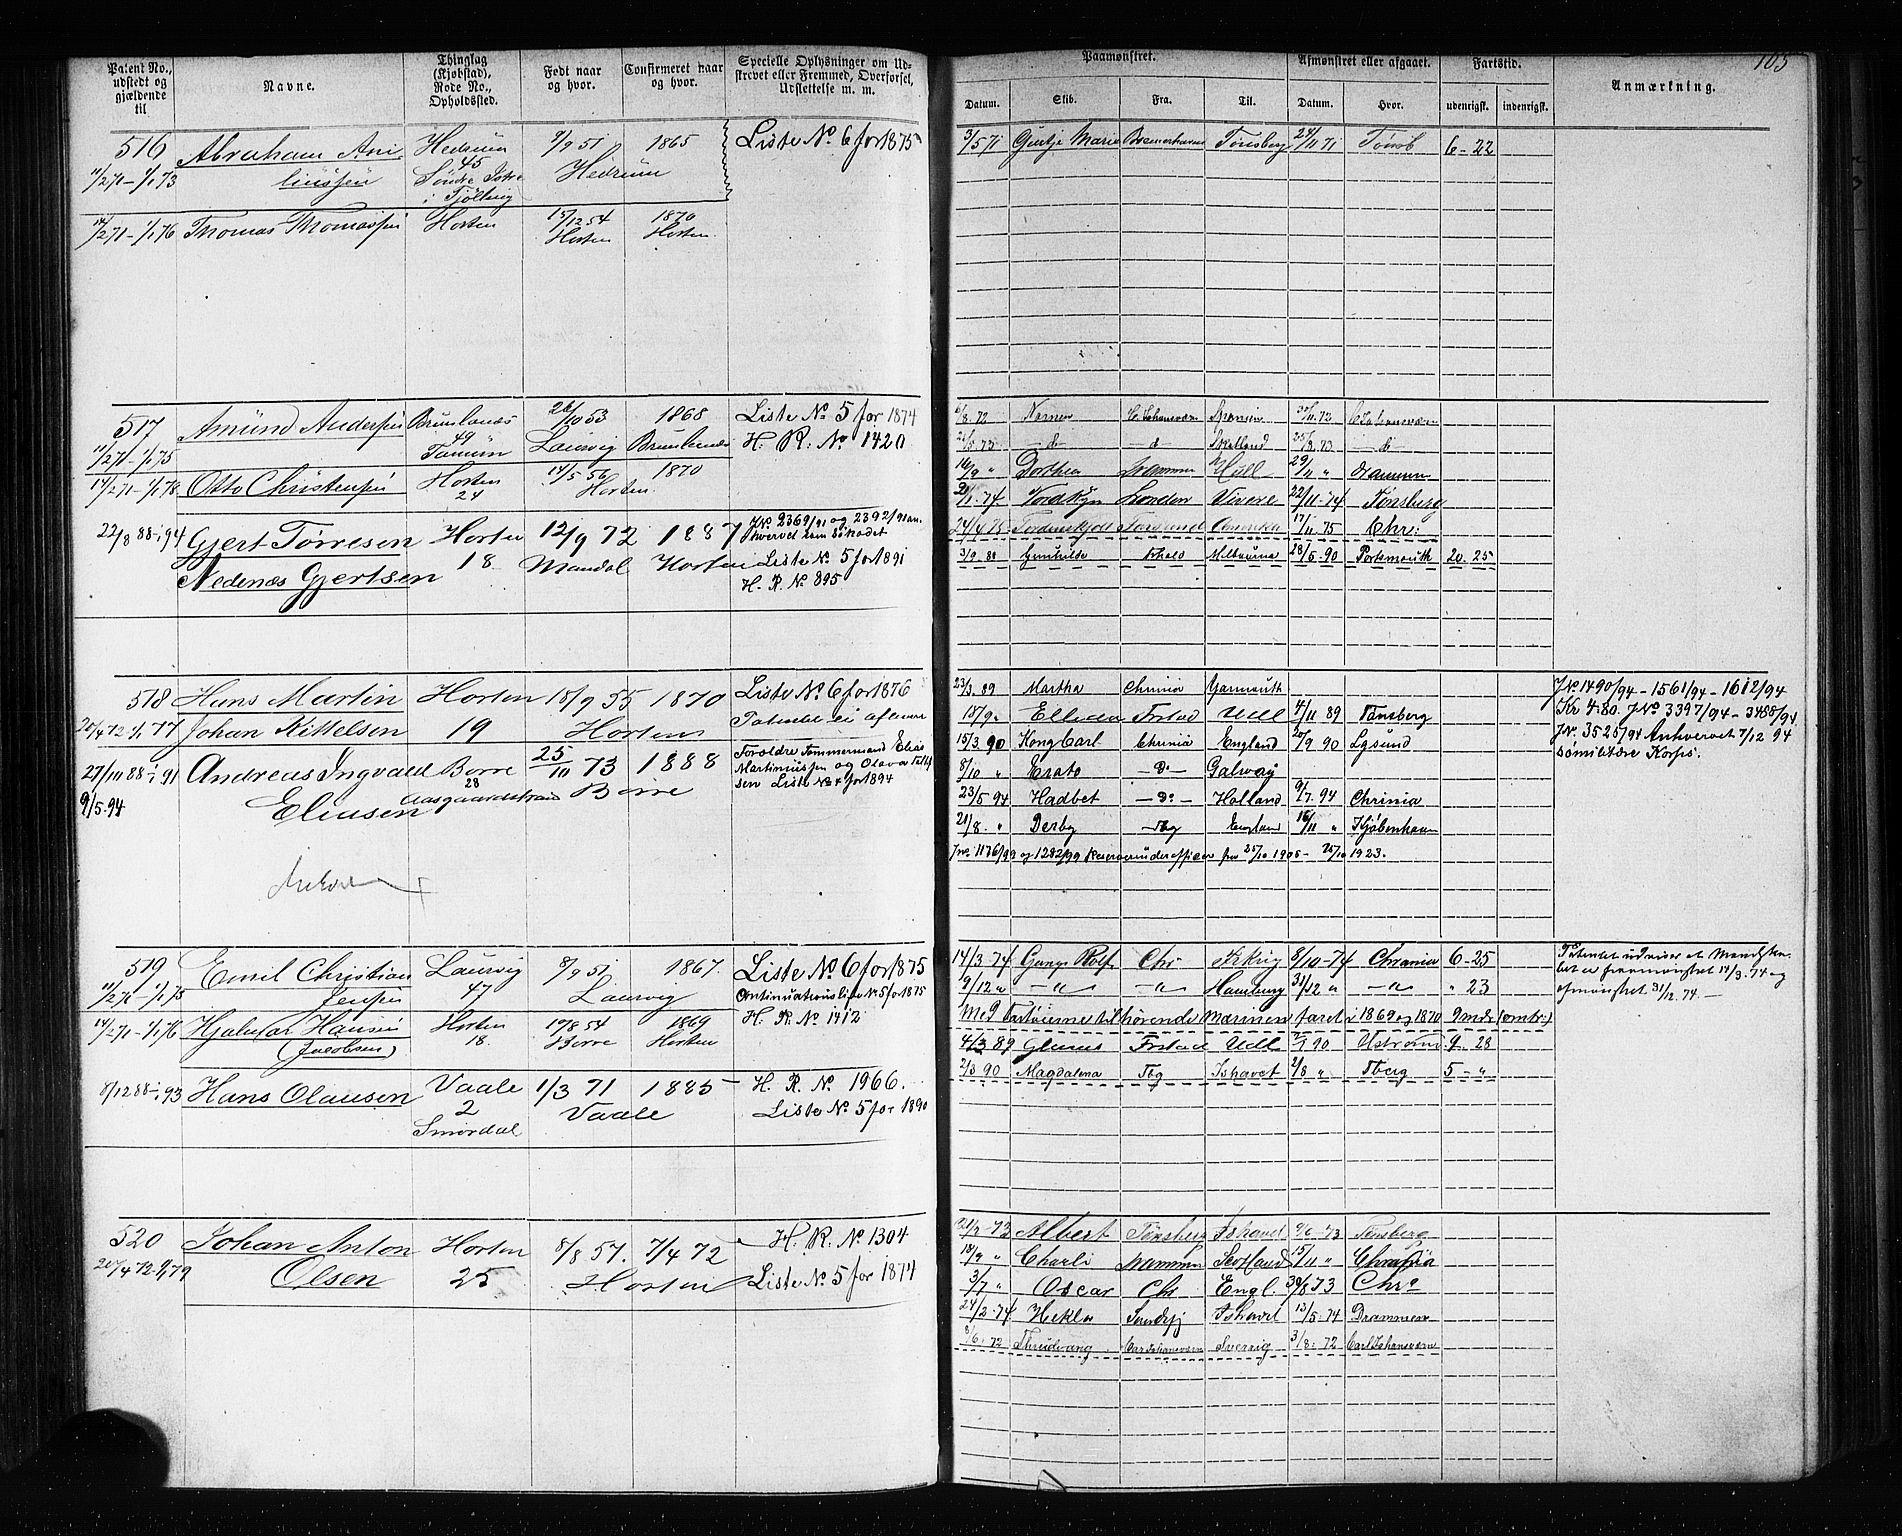 105
Patent No., udstedt og gjældende til
Navne.
Thinglag (Kjøbstad), Rode No., Opholdssted.
Født naar og hvor.
Confirmeret naar og hvor.
Specielle Oplysninger om Udskrevet eller Fremmed, Overførsel, Udslettelse m. m.
Paamønstret.
Afmønstret eller afgaaet.
Fartstid.
Anmærkning.
Datum. Skib. Fra. Til. Datum. Hvor. udenrigsk. indenrigsk.
516 Abraham Ani Hedrum 9/9 51 1865 Liste No 6 for 1875
11/2 71 - 1/1 73 liussen 45 Hedrum
Søndre
i Tjølling
14/2 71 - 1/1 76 Thomas Thomassen Horten 15/12 54 1870
Horten Horten
3/5 71 Gertje Marie Bremerhaven Tønsberg 24/11 71 Tønsb 6-22
517 Amund Andersen Brunlanes 26/10 53 1868 Liste No 5 for 1874
11/2 71 - 1/1 75 49 Laurvig Brunlanes H. R. No 1420
Tanum
14/2 71 - 1/1 78 Otto Christensen Horten 14/5 56 1870
24 Horten
22/8 88 - i 94 Gjert Tørresen Horten 12/9 72 1887 JNo 2369/91 og 2392/91 an
hvervet som Søkadet
Nedenæs Gjertsen 18 Mandal Horten Liste No 5 for 1891
H. R. No 895
Skotland
16/9 " Dorthea Drammen Hull 29/11 " Drammen
Nordkyn London 22/11-74 Tønsberg
17/11 75 Chr:
3/9. 88 Gunhilde Melbourne 28/5 90 Portsmouth 20. 25
518 Hans Martin Horten 18/9 55 1870 Liste No 6 for 1876
20/4 72 - 1/1 77 Johan Kittelsen 19 Horten Patentet ei afleveret
27/11 88 - i 91 Andreas Ingvald Borre 25/10 73 1888 Forældre Tømmermand Elias
9/5-94 Eliasen 28 Borre Martiniussen og Olava
Aasgaardstrand sen Liste No 4 for 1894
23/3. 89 Martha Chrinia Yarmouth
18/9. Ellida Frstad Udl 4/11 89 Tønsberg
15/3 90 Kong Carl Chrinia England 20/9 90 Lysund
8/10 " Erato - Do - Galway
23/5 94 Hadbet - Do - Holland 9/7. 94 Chrinia
21/8. " Derby England 16/11 " Kjøbenhavn
Jno. 1176/99 og 1282/99 Reserveunderofficer fra 25/10 1905 - 25/10 1923.
JNo 1490/94 - 1561/94 - 1612/94
Kr 4.80. JNo 3397/94 - 3485/94
JNo. 3525/94 Anhvervet 7/12 94
Sømilitære Korps.
519 Emil Christian Laurvig 8/9 51 1867. Liste No 6 for 1875
11/2 71 - 1/1 75 Jensen 47 Laurvig Continuationsliste No 5 for 1875
14/2 71 - 1/1 76 Hjalmar Hansen Horten 17/8 54 1869 H. R. No 1412
(Jacobsen) 18. Borre Horten
8/12 88 - i 93 Hans Olausen Vaale 1/3 71 1885 H. R. No. 1966.
2 Vaale Liste No 5 for 1890
Smørdal
14/3 74 Gange Rolf Chr 8/10-74 Chrania 6-25
9/12 " - " - - " - Hamburg 31/12 " - " - " 23
Med Fartøierne tilhørende Marinen faret i 1869 og 1870 9 mdr (omtr:)
4/3 89 Glenus Frstad Udl 90 9 - 28
2/3 90 Magdalena Tbg Ishavet 2/8 " Tberg 5 - "
Patentet udviser at Mandska
bet er fremmønstret 14/3 74 og
afmønstret 31/12. 74. -
520 Johan Anton Horten 8/8 57. 7/4 72 H. R. No 1304
20/4 72 - 1/1 79 Olsen 25 Horten Liste No. 5 for 1874
Albert Tønsberg Ishavet 73 Tønsberg
Charli Drammen Scotland 15/11 " Chrania
3/7 " Oscar Chr Engl. 30/8 73 Chra
24/2-74 Hekla Sandefj Ishavet 13/5-74 Drammen
8/6. 72 Thrudvang Carl Johansværn Sverrig 3/8. 72 Carl Johansværn